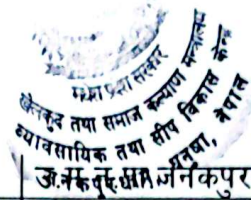 मधेश प्रदेश सरकार
खेलकुद तथा समाज कल्याण मन्त्रालय
व्यावसायिक तथा सीप विकास केन्द्र
धनुषा, नेपाल
जनकपुर